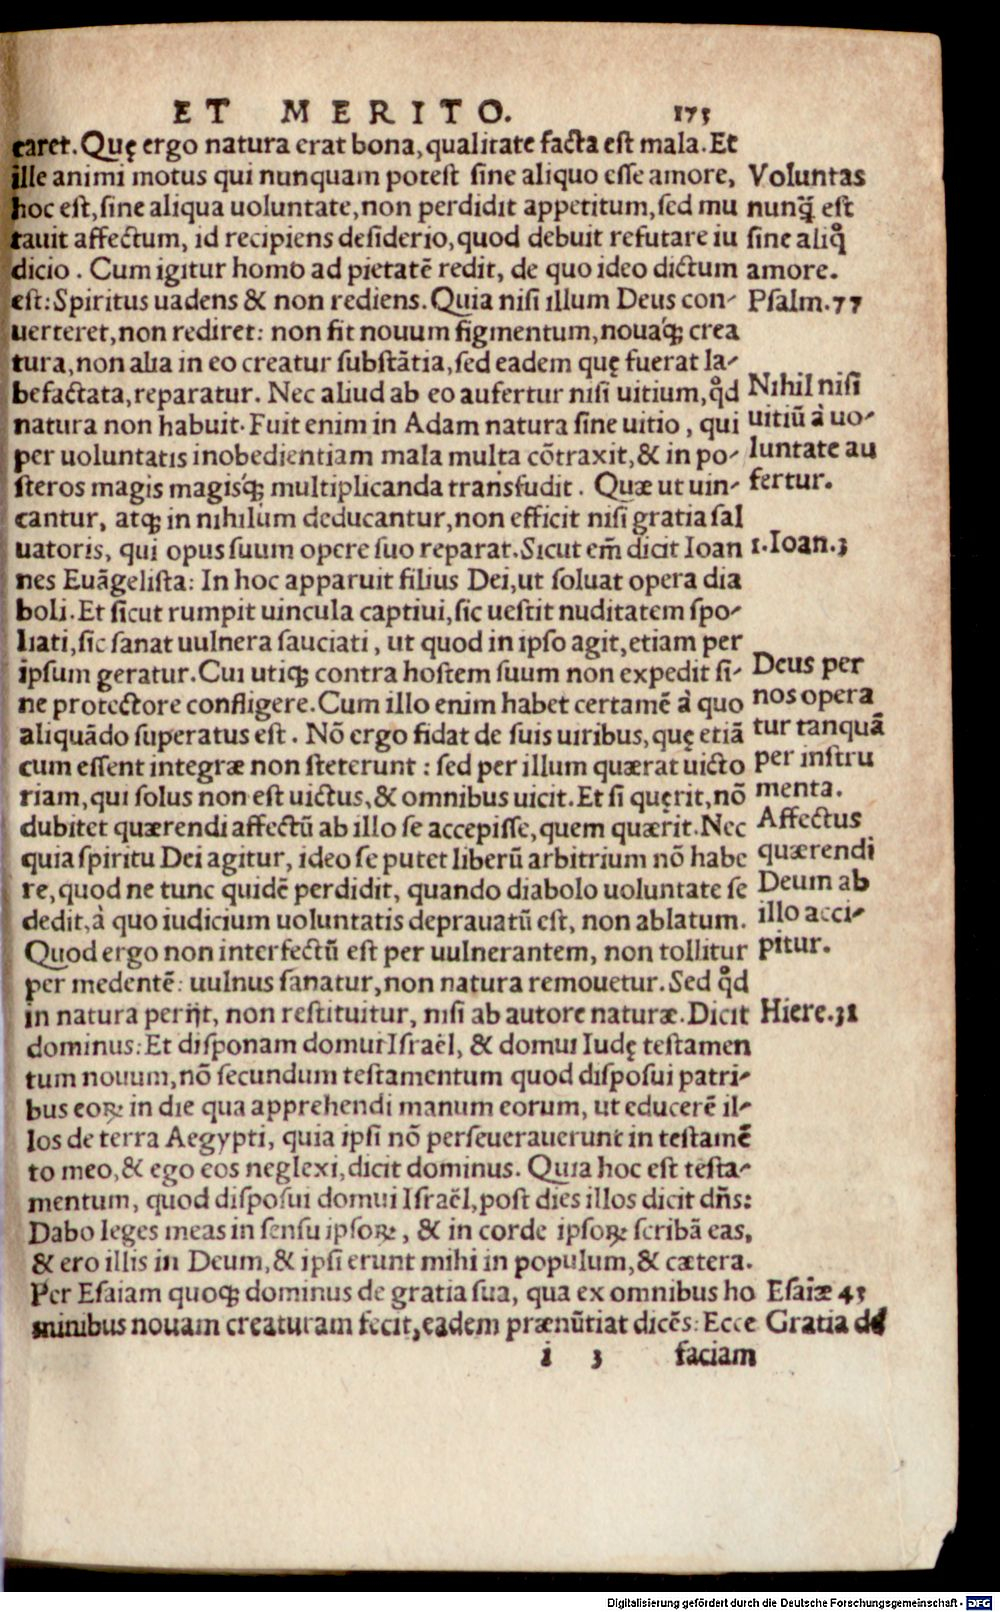 ET MERITO. 175
caret. Quę ergo natura erat bona, qualitate facta est mala. Et
ille animi motus qui nunquam potest sine aliquo esse amore,
hoc est, sine aliqua uoluntate, non perdidit appetitum, sed mu
tauit affectum, id recipiens desiderio, quod debuit refutare iu
dicio. Cum igitur homo ad pietatē redit, de quo ideo dictum
est: Spiritus uadens & non rediens. Quia nisi illum Deus con-
uerteret, non rediret: non fit nouum figmentum, nouáq; crea
tura, non alia in eo creatur substātia, sed eadem quę fuerat la-
befactata, reparatur. Nec aliud ab eo aufertur nisi uitium, qd̕
natura non habuit. Fuit enim in Adam natura sine uitio, qui
per uoluntatis inobedientiam mala multa cōtraxit, & in po-
steros magis magisq́; multiplicanda transfudit. Quæ ut uin-
cantur, atq; in nihilum deducantur, non efficit nisi gratia sal
uatoris, qui opus suum opere suo reparat. Sicut em̄ dicit Ioan
nes Euāgelista: In hoc apparuit filius Dei, ut soluat opera dia
boli. Et sicut rumpit uincula captiui, sic uestit nuditatem spo-
liati, sic sanat uulnera sauciati, ut quod in ipso agit, etiam per
ipsum geratur. Cui utiq; contra hostem suum non expedit si-
ne protectore confligere. Cum illo enim habet certamē à quo
aliquādo superatus est. Nō ergo fidat de suis uiribus, quę etiā
cum essent integræ non steterunt: sed per illum quærat uicto
riam, qui solus non est uictus, & omnibus uicit. Et si quęrit, nō
dubitet quærendi affectū ab illo se accepisse, quem quærit. Nec
quia spiritu Dei agitur, ideo se putet liberū arbitrium nō habe
re, quod ne tunc quidē perdidit, quando diabolo uoluntate se
dedit, à quo iudicium uoluntatis deprauatū est, non ablatum.
Quod ergo non interfectū est per uulnerantem, non tollitur
per medentē: uulnus sanatur, non natura remouetur. Sed qd̕
in natura perijt, non restituitur, nisi ab autore naturæ. Dicit
dominus: Et disponam domui Israël, & domui Iudę testamen
tum nouum, nō secundum testamentum quod disposui patri-
bus eoꝝ in die qua apprehendi manum eorum, ut educerē il-
los de terra Aegypti, quia ipsi nō perseuerauerunt in testamē
to meo, & ego eos neglexi, dicit dominus. Quia hoc est testa-
mentum, quod disposui domui Israël, post dies illos dicit dn̄s:
Dabo leges meas in sensu ipsoꝝ, & in corde ipsoꝝ scribā eas,
& ero illis in Deum, & ipsi erunt mihi in populum, & cætera.
Per Esaiam quoq; dominus de gratia sua, qua ex omnibus ho
minibus nouam creaturam fecit, eadem prænūtiat dicēs: Ecce
i 3 faciam
Voluntas
nunq̄ est
sine aliq̊
amore.
Psalm. 77
Nihil nisi
uitiū à uo-
luntate au
fertur.
1. Ioan. 3
Deus per
nos opera
tur tanquā
per instru
menta.
Affectus
quærendi
Deum ab
illo acci-
pitur.
Hiere. 31
Esaiæ 43
Gratia de
Digitalisierung gefördert durch die Deutsche Forschungsgemeinschaft - DFG